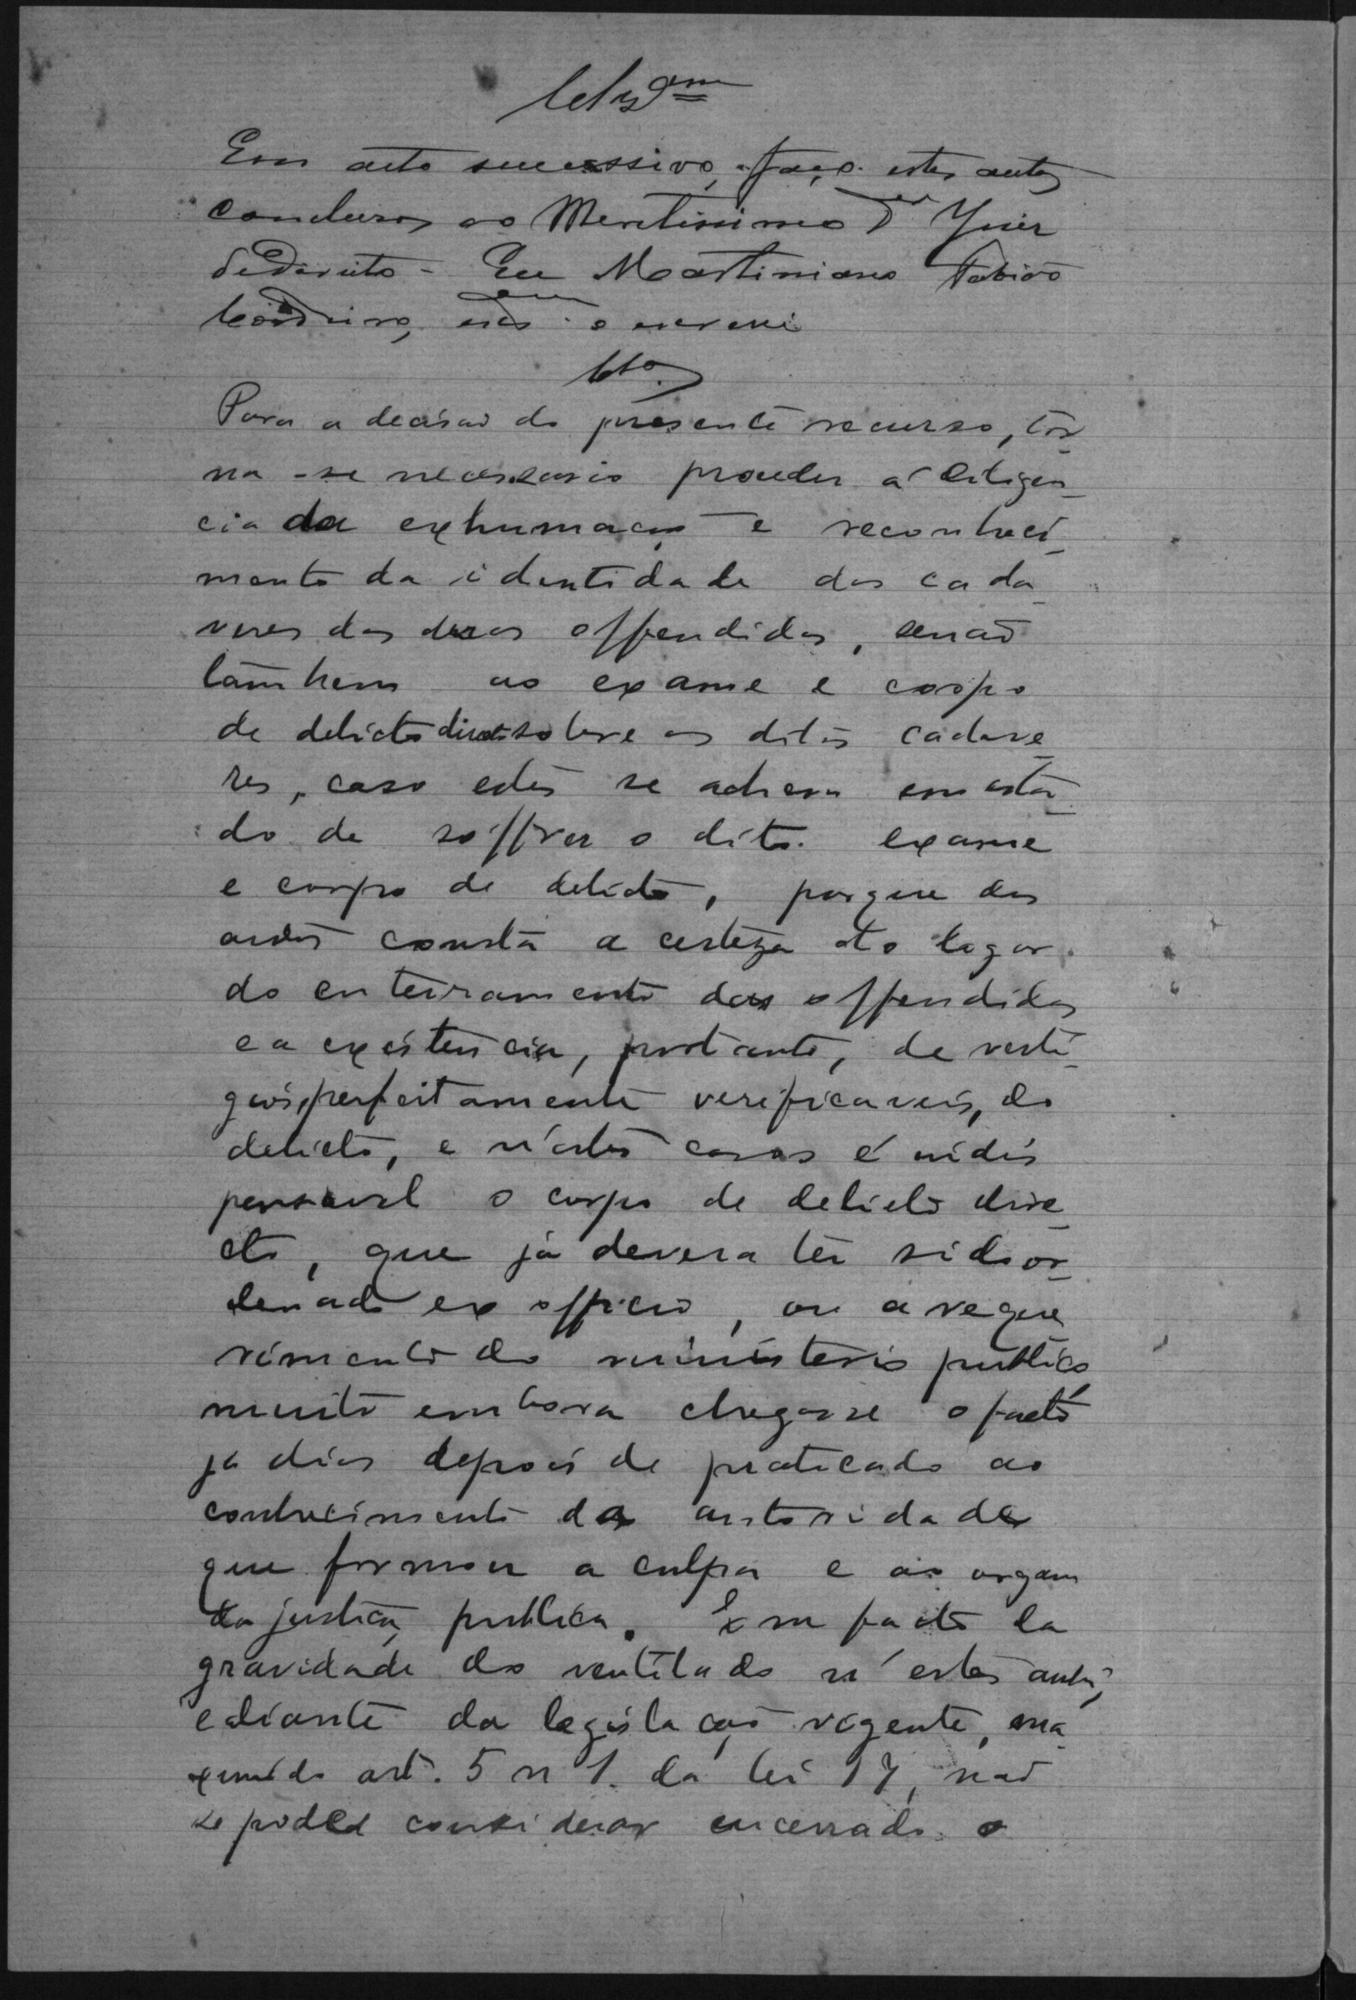 Clzam
Em acto successivo, faço estes autos
conclusos ao Meretissimo Dr Juiz
de Direito - Eu Martiniano Fabião
Cordeiro, escam o escrevi
Clo.
Para a decisão do presente recurso, tor
na-se necessario proceder á diligen
cia da exhumação e reconheci
mento da identidade dos cada
veres dos dous offendidos, senão
tambem ao exame e corpo
de delicto directo sobre os ditos cadave
res, caso estes se achem em esta
do de soffrer o dito exame
e corpo de delicto, porque dos
autos consta a certeza do logar
do enterramento dos offendidos
e a existencia, portanto, de vesti
gios, perfeitamente verificaveis, do
delicto, e n'estes casos é indis
pensavel o corpo de delicto dire
cto, que já devera ter sido or
denado ex officio, ou a reque
rimento do ministerio publico,
muito embora chegasse o facto
já dias depois de praticado ao
conhecimento da autoridade
que formou a culpa e ao orgam
da justiça publica. Em facto da
gravidade do ventilado n'estes autos,
e diante da legislação vigente, ma
xime do art. 5 n 1. da lei 17, não
se poded considerar encerrado o